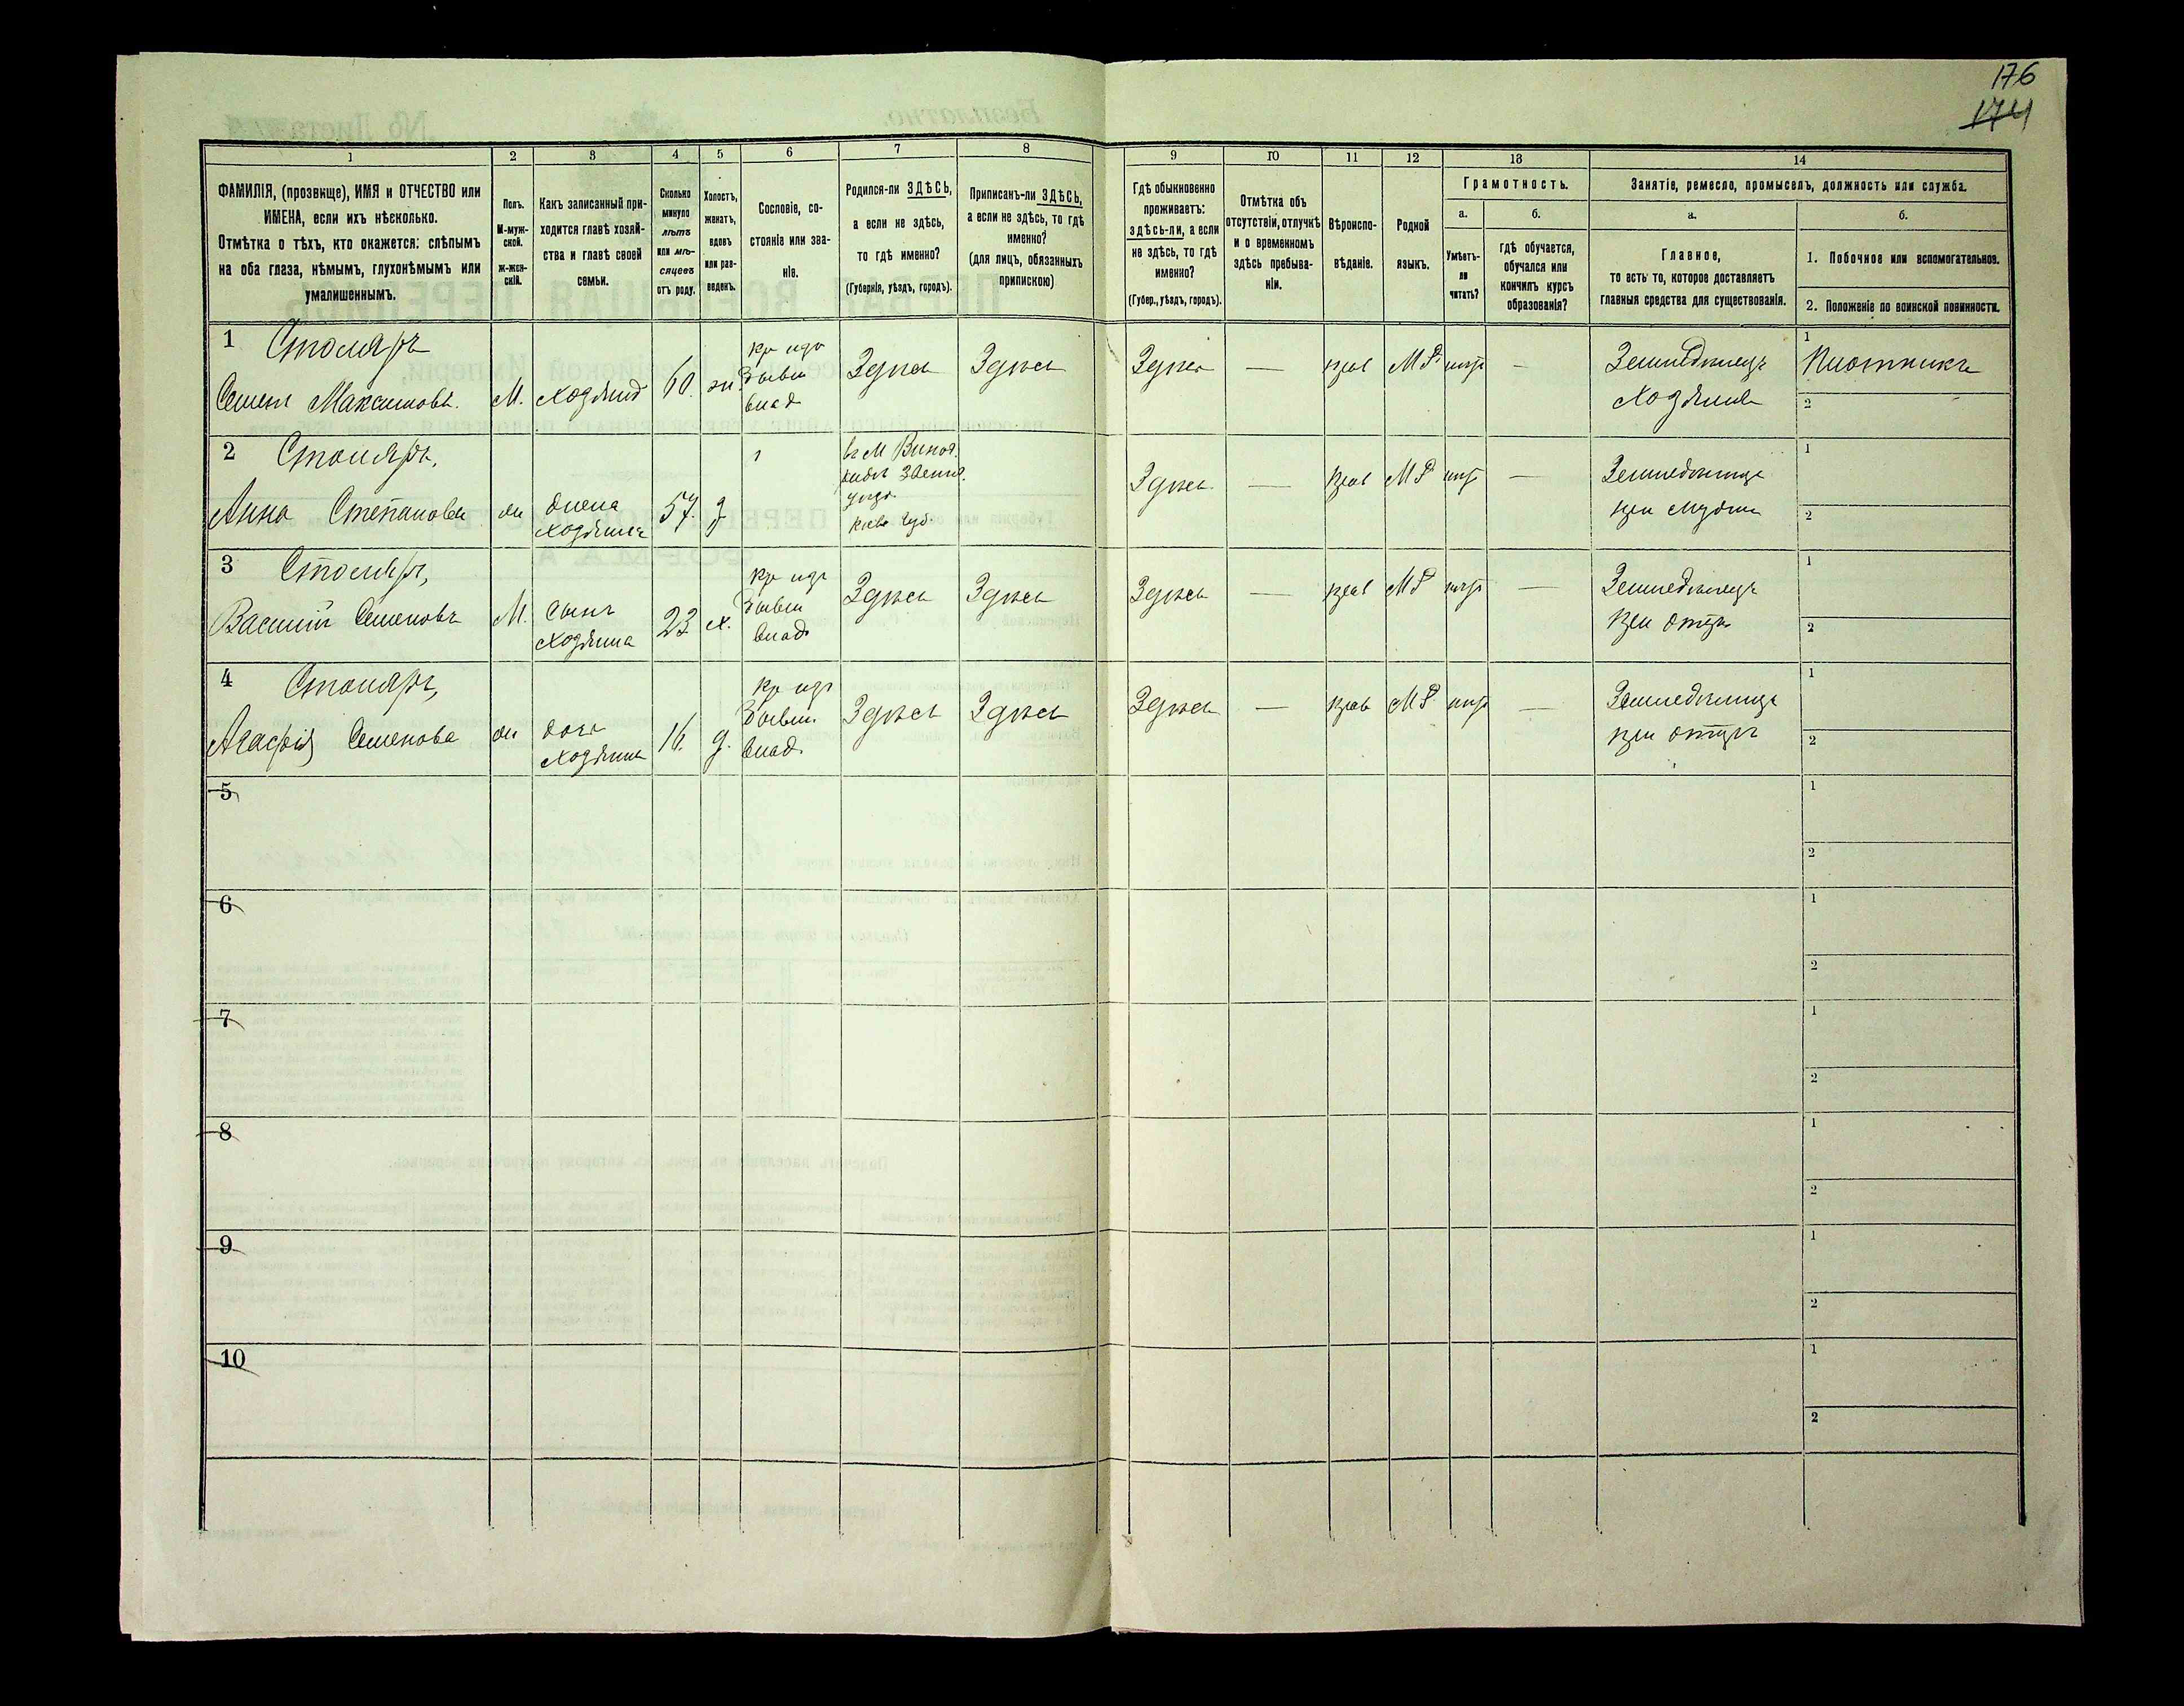 176
174
1
2
3
4
5
6
7
8
9
10
11
12
13
14
ФАМИЛІЯ, (прозвище), ИМЯ и ОТЧЕСТВО или
ИМЕНА, если ихъ нѣсколько.
Отмѣтка о тѣхъ, кто окажется: слѣпымъ
на оба глаза, нѣмымъ, глухонѣмымъ или
умалишеннымъ.
Полъ.
М-муж-
ской.
ж-жен-
скій.
Какъ записанный при-
ходится главѣ хозяй-
ства и главѣ своей
семьи.
Сколько
минуло
лѣтъ
или мѣ-
сяцевъ
отъ роду.
Холостъ,
женатъ,
вдовъ
или раз-
веденъ.
Сословіе, со-
стояніе или зва-
ніе.
Родился-ли ЗДѢСЬ,
а если не здѣсь,
то гдѣ именно?
(Губернія, уѣздъ, городъ).
Приписанъ-ли ЗДѢСЬ,
а если не здѣсь, то гдѣ
именно?
(для лицъ, обязанныхъ
припискою)
Гдѣ обыкновенно
проживаетъ:
здѣсь-ли, а если
не здѣсь, то гдѣ
именно?
(Губер., уѣздъ, городъ).
Отмѣтка объ
отсутствіи, отлучкѣ
и о временномъ
здѣсь пребыва-
ніи.
Вѣроиспо-
вѣданіе.
Родной
языкъ.
Грамотность.
а.
Умѣетъ-
ли
читать?
б.
гдѣ обучается,
обучался или
кончилъ курсъ
образованія?
Занятіе, ремесло, промыселъ, должность или служба.
а.
Главное,
то есть то, которое доставляетъ
главныя средства для существованія.
б.
1. Побочное или вспомогательное.
2. Положеніе по воинской повинности.
1 Столяръ
Семенъ Максимовъ. М. хозяинъ 60. ж.
кр изъ
бывш
влад
Здѣсь Здѣсь Здѣсь — прав М Р. —
Земледѣлецъ
хозяинъ
1
Плотникъ
2
2 Столяръ,
Анна Степанова ж
жена
хозяина
57. з
въ М
уѣзд.
Кіев Губ
Здѣсь — прав М Р —
Земледѣлица
при мужѣ
1
2
3 Столяръ,
Василій Семеновъ М.
сынъ
хозяина
23 х.
кр изъ
бывш
влад
Здѣсь Здѣсь Здѣсь — прав М Р —
Земледѣлецъ
при отцѣ
1
2
4 Столяръ,
Агафія Семенова ж
дочь
хозяина
16. д.
кр изъ
бывш.
влад.
Здѣсь Здѣсь Здѣсь — прав М Р —
Земледѣлица
при отцѣ
1
2
5
1
2
6
1
2
7
1
2
8
1
2
9
1
2
10
1
2